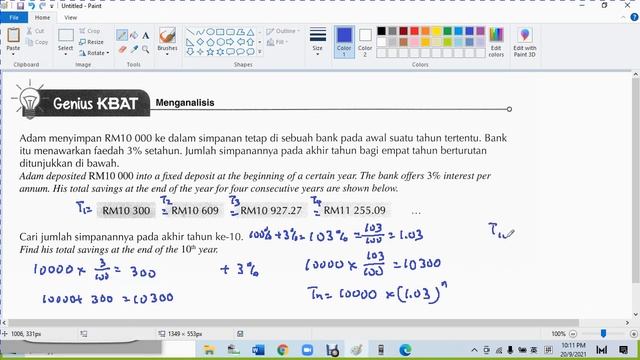 Untitled - Paint
File Home View
Paste
Cut
Copy
Select
Crop
Resize
Rotate
Brushes
Outline
Fill
Size
Color 1
Color 2
Edit colors
Edit with Paint 3D
Clipboard
Image
Tools
Shapes
Colors
Genius KBAT Menganalisis
Adam menyimpan RM10 000 ke dalam simpanan tetap di sebuah bank pada awal suatu tahun tertentu. Bank
itu menawarkan faedah 3% setahun. Jumlah simpanannya pada akhir tahun bagi empat tahun berturutan
ditunjukkan di bawah.
Adam deposited RM10 000 into a fixed deposit at the beginning of a certain year. The bank offers 3% interest per
annum. His total savings at the end of the year for four consecutive years are shown below.
T₁= T₂= T₃= T₄=
RM10 300 RM10 609 RM10 927.27 RM11 255.09 ...
Cari jumlah simpanannya pada akhir tahun ke-10. 100% + 3% = 103% = 103/100 = 1.03
Find his total savings at the end of the 10th year.
10000 × 3/100 = 300 + 3% 10000 × 103/100 = 10300
10000 + 300 = 10300 Tn = 10000 × (1.03)ⁿ
1006, 331px
1349 × 553px
100%
10:11 PM
20/9/2021